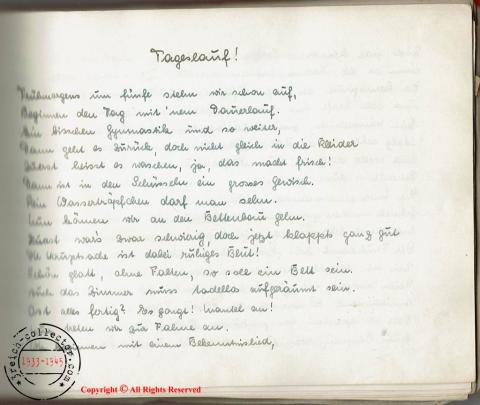 Tageslauf!
Frühmorgens um fünfe stehn wir schon auf,
Beginnen den Tag mit 'nem Dauerlauf.
Ein bisschen Gymnastik und so weiter,
Dann geht es zurück, doch nicht gleich in die Kleider
Zuerst heisst es waschen, ja, das macht frisch!
Dann ist in den Schüsseln ein grosses Gewisch.
Kein Wassertröpfchen darf man sehn.
Nun können wir an den Bettenbau gehn.
Zuerst war's zwar schwierig, doch jetzt klappts ganz gut
Die Hauptsache ist dabei ruhiges Blut!
Schön glatt, ohne Falten, so soll ein Bett sein.
Auch das Zimmer muss tadellos aufgeräumt sein.
Ist alles fertig? Es gongt! Mantel an!
treten wir zur Fahne an.
mit einem Bekenntnislied,
3reich-collector.com
1933-1945
Copyright © All Rights Reserved